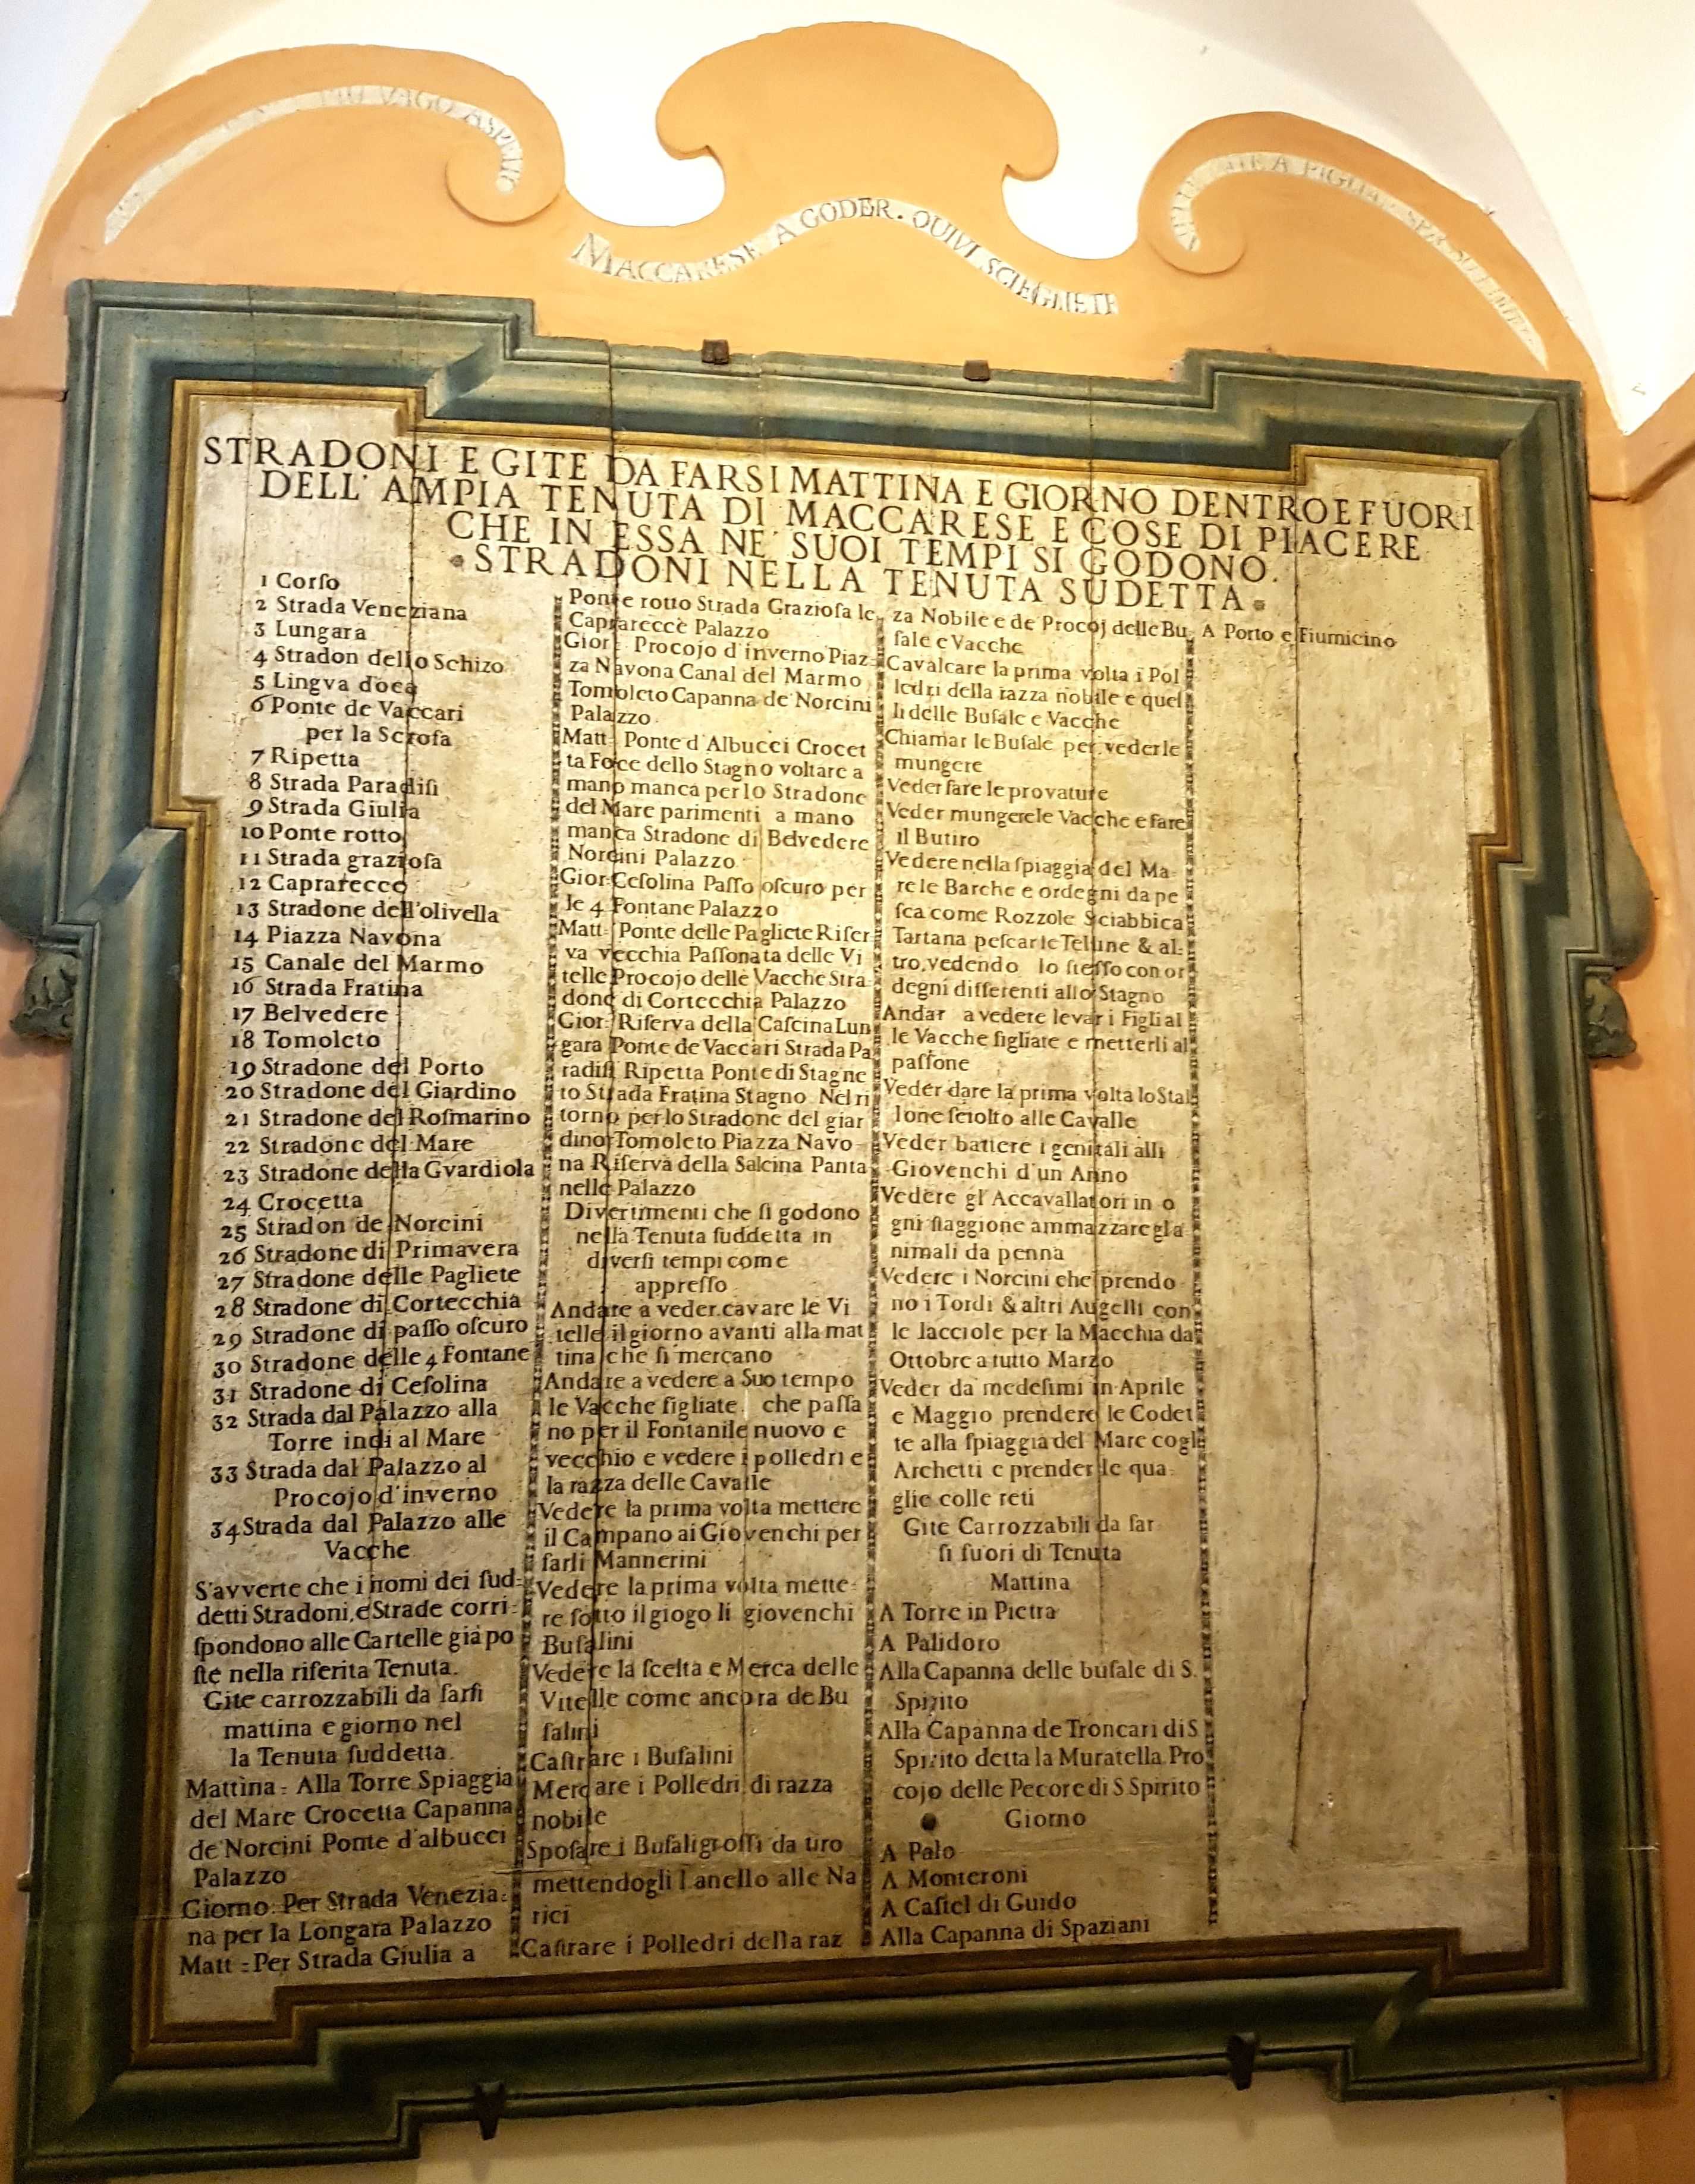 PIU VAGO
MACCARESE A GODER. QUIVI SCIEGLIETE
A PIGLIAR
STRADONI E GITE DA FARSI MATTINA E GIORNO DENTRO E FUORI
DELL' AMPIA TENUTA DI MACCARESE E COSE DI PIACERE
CHE IN ESSA NE' SUOI TEMPI SI GODONO.
STRADONI NELLA TENUTA SUDETTA
1 Corſo
2 Strada Veneziana
3 Lungara
4 Stradon dello Schizo
5 Lingva d'oca
6 Ponte de Vaccari
per la Scrofa
7 Ripetta
8 Strada Paradiſi
9 Strada Giulia
10 Ponte rotto
11 Strada grazioſa
12 Caprarecce
13 Stradone dell'olivella
14 Piazza Navona
15 Canale del Marmo
16 Strada Fratina
17 Belvedere
18 Tomoleto
19 Stradone del Porto
20 Stradone del Giardino
21 Stradone del Roſmarino
22 Stradone del Mare
23 Stradone della Gvardiola
24 Crocetta
25 Stradon de Norcini
26 Stradone di Primavera
27 Stradone delle Pagliete
28 Stradone di Cortecchia
29 Stradone di paſſo oſcuro
30 Stradone delle 4 Fontane
31 Stradone di Ceſolina
32 Strada dal Palazzo alla
Torre indi al Mare
33 Strada dal Palazzo al
Procojo d'inverno
34 Strada dal Palazzo alle
Vacche
S'avverte che i nomi dei ſud=
detti Stradoni, e Strade corri=
ſpondono alle Cartelle già po
ſte nella riferita Tenuta.
Gite carrozzabili da farſi
mattina e giorno nel
la Tenuta ſuddetta.
Mattina= Alla Torre Spiaggia
del Mare Crocetta Capanna
de' Norcini Ponte d'albucci
Palazzo
Giorno: Per Strada Venezia=
na per la Longara Palazzo
Matt=Per Strada Giulia a
Ponte rotto Strada Grazioſa le
Caprarecce Palazzo
Gior: Procojo d'inverno Piaz=
za Navona Canal del Marmo
Tomoleto Capanna de' Norcini
Palazzo
Matt= Ponte d'Albucci Crocet
ta Foce dello Stagno voltare a
mano manca per lo Stradone
del Mare parimenti a mano
manca Stradone di Belvedere
Norcini Palazzo
Gior: Ceſolina Paſſo oſcuro per
le 4 Fontane Palazzo
Matt= Ponte delle Pagliete Riſer
va vecchia Paſſonata delle Vi
telle Procojo delle Vacche Stra=
done di Cortecchia Palazzo
Gior: Riſerva della Caſcina Lun
gara Ponte de Vaccari Strada Pa
radiſi Ripetta Ponte di Stagne
to Strada Fratina Stagno Nel ri
torno per lo Stradone del giar
dino Tomoleto Piazza Navo
na Riſerva della Salcina Panta
nelle Palazzo
Divertimenti che ſi godono
nella Tenuta ſuddetta in
diverſi tempi come
appreſſo
Andare a veder cavare le Vi
telle il giorno avanti alla mat
tina che ſi mercano
Andare a vedere a Suo tempo
le Vacche figliate che paſſa
no per il Fontanile nuovo e
vecchio e vedere i polledri e
la razza delle Cavalle
Vedere la prima volta mettere
il Campano ai Giovenchi per
farli Mannerini
Vedere la prima volta mette=
re ſotto il giogo li giovenchi
Bufalini
Vedere la ſcelta e Merca delle
Vitelle come ancora de Bu
falini
Caſtrare i Bufalini
Mercare i Polledri di razza
nobile
Spoſare i Bufali groſſi da tiro
mettendogli l'anello alle Na
rici
Caſtrare i Polledri della raz
za Nobile e de Procoj delle Bu
fale e Vacche
Cavalcare la prima volta i Pol
ledri della razza nobile e quel
li delle Bufale e Vacche
Chiamar le Bufale per vederle
mungere
Veder fare le provature
Veder mungere le Vacche e fare
il Butiro
Vedere nella ſpiaggia del Ma=
re le Barche e ordegni da pe
ſca come Rozzole Sciabbica
Tartana peſcar le Telline & al=
tro, vedendo lo ſteſſo con or
degni differenti allo Stagno
Andar a vedere levar i Figli al
le Vacche figliate e metterli al
paſſone
Veder dare la prima volta lo Stal
lone ſciolto alle Cavalle
Veder battere i genitali alli
Giovenchi d'un Anno
Vedere gl'Accavallatori in o
gni ſtaggione ammazzare gl'a
nimali da penna
Vedere i Norcini che prendo
no i Tordi & altri Augelli con
le lacciole per la Macchia da
Ottobre a tutto Marzo
Veder da medeſimi in Aprile
e Maggio prendere le Codet
te alla ſpiaggia del Mare cogl
Archetti e prender le qua=
glie colle reti
Gite Carrozzabili da far
ſi fuori di Tenuta
Mattina
A Torre in Pietra
A Palidoro
Alla Capanna delle bufale di S.
Spirito
Alla Capanna de Troncari di S
Spirito detta la Muratella Pro
cojo delle Pecore di S Spirito
Giorno
A Palo
A Monteroni
A Caſtel di Guido
Alla Capanna di Spaziani
A Porto e Fiumicino